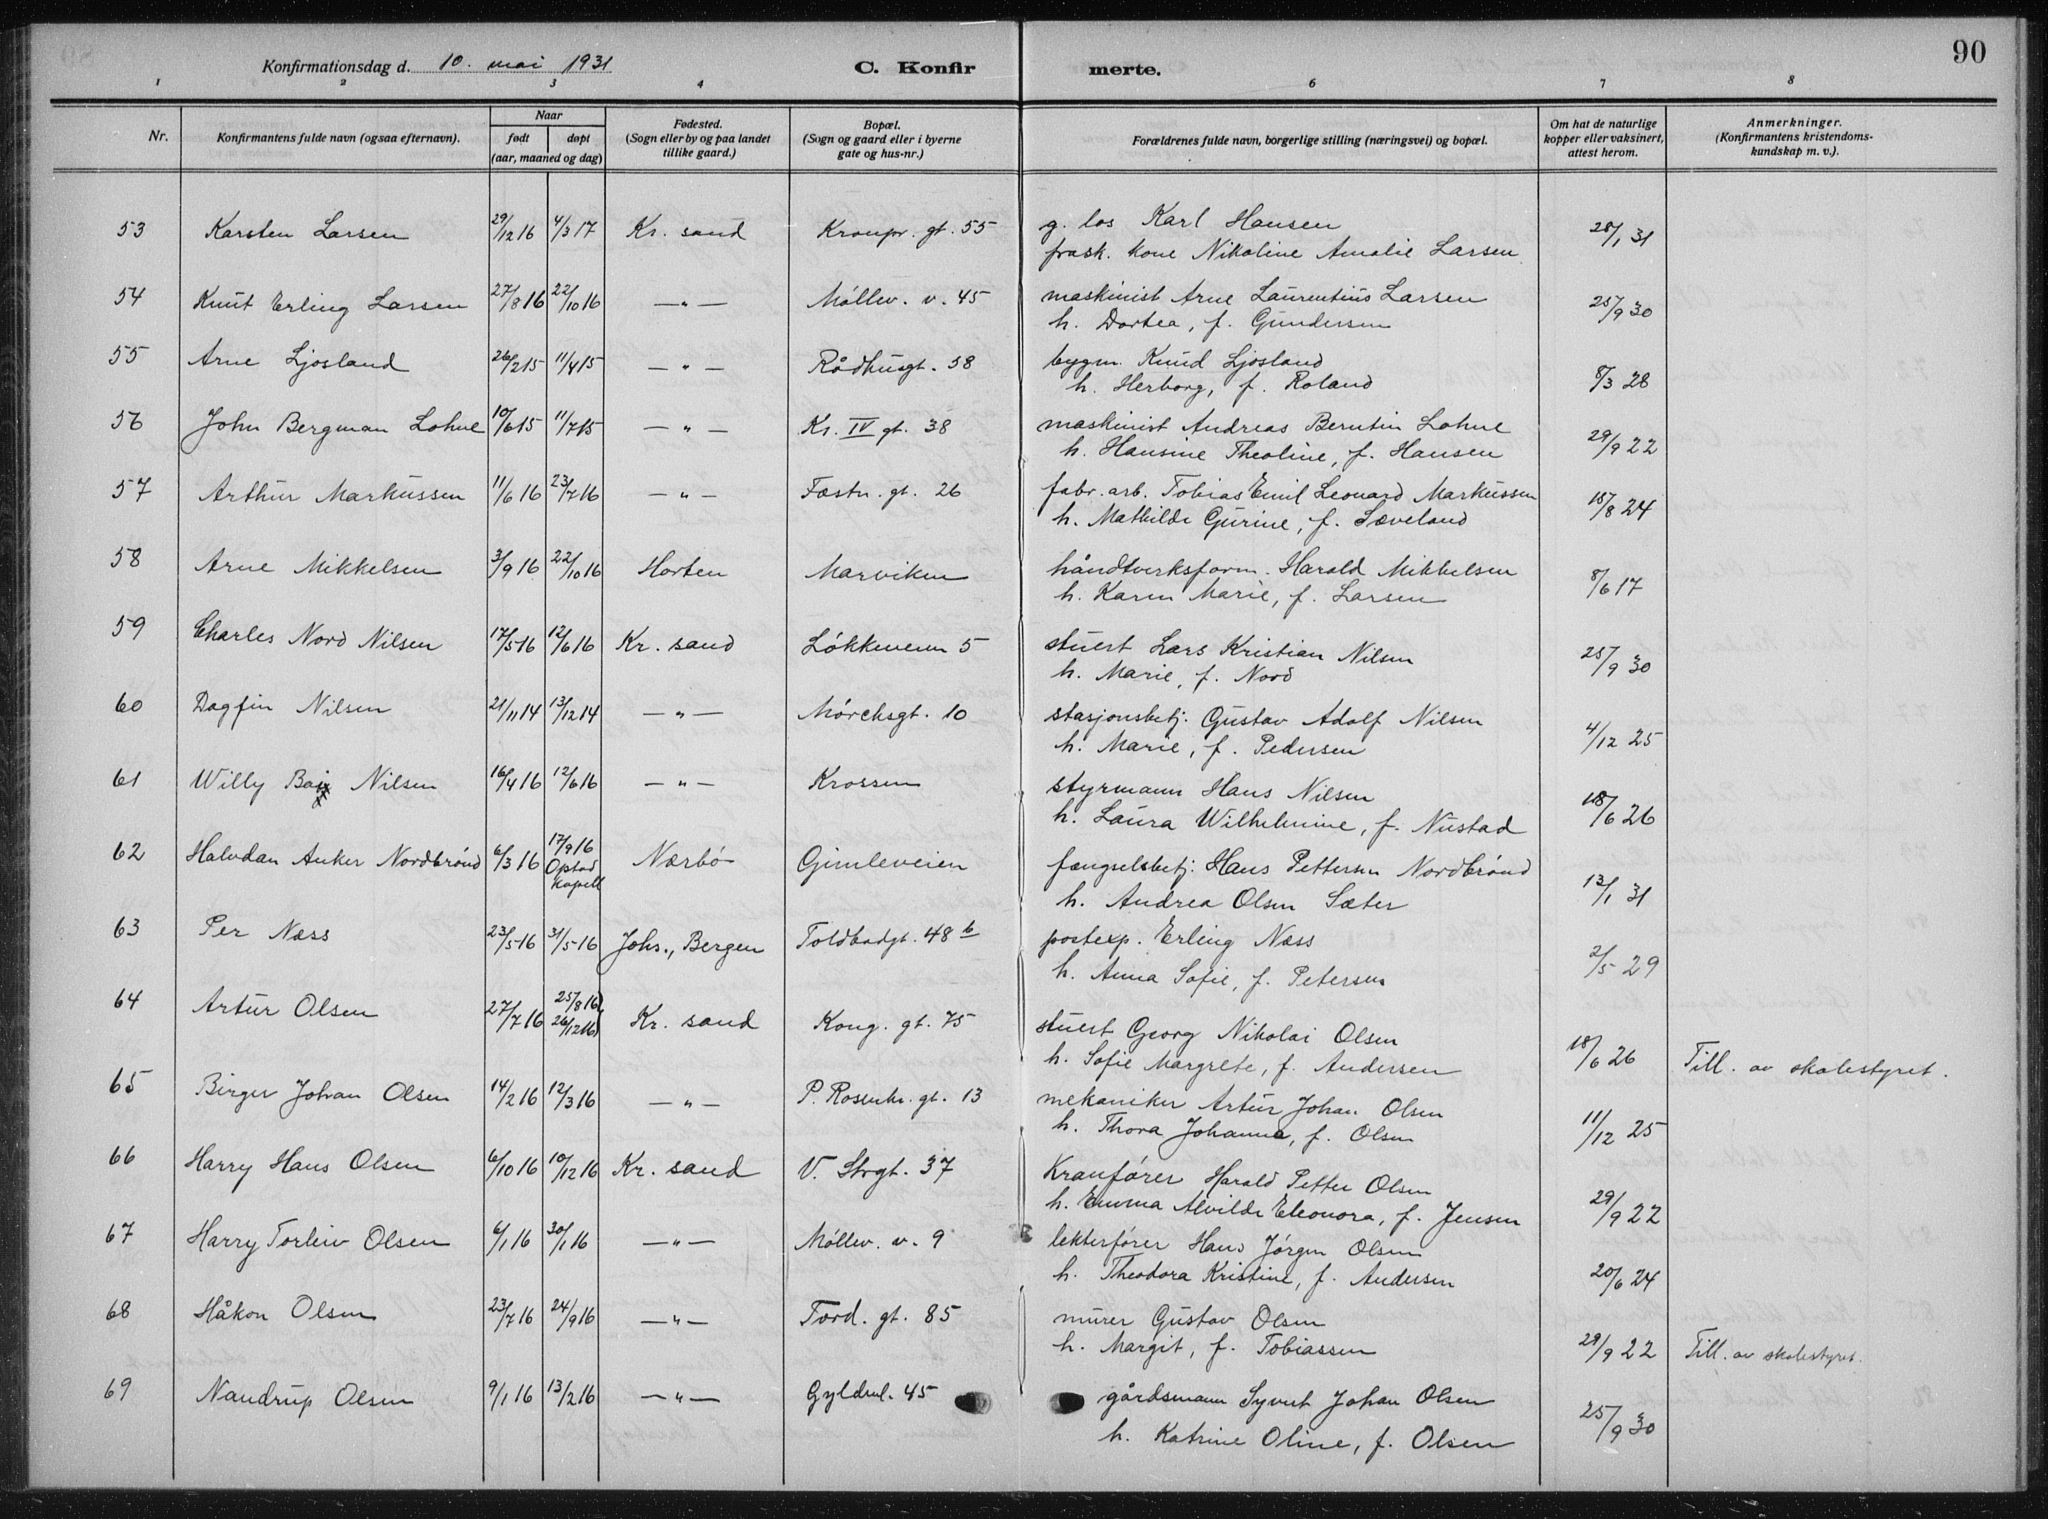 90
Konfirmationsdag d. 10. mai 1931 C. Konfir merte.
1 2 3 4 6 7 8
Nr. Konfirmantens fulde navn (ogsaa efternavn). Naar født døpt (aar, maaned og dag) Fødested. (Sogn eller by og paa landet tillike gaard.) Bopæl. (Sogn og gaard eller i byerne gate og hus-nr.) Forældrenes fulde navn, borgerlige stilling (næringsvei) og bopæl. Om hat de naturlige kopper eller vaksinert, attest herom. Anmerkninger. (Konfirmantens kristendoms-kundskap m. v.).
53 Karsten Larsen 29/12 16 4/3 17 Kr. sand Kronpr. gt. 55 g. los Karl Hansen 28/1 31
frask. kone Nikoline Amalie Larsen
54 Knut Erling Larsen 27/8 16 22/10 16 —„— Møllev. v. 45 maskinist Arne Laurentius Larsen 25/9 30
h. Dortea, f. Gundersen
55 Arne Ljosland 26/2 15 11/4 15 —„— Rådhusgt. 58 bygm. Knud Ljosland
h. Herborg, f. Roland 8/3 28
56 John Bergman Lohne 10/6 15 11/7 15 —„— Kr. IV gt. 38 maskinist Andreas Berntin Lohne 29/9 22
h. Hansine Theoline, f. Hansen
57 Arthur Markussen 11/6 16 23/7 16 —„— Fæstn. gt. 26 fabr. arb. Tobias Emil Leonard Markussen 15/8 24
h. Mathilde Gurine, f. Sæveland
58 Arne Mikkelsen 3/9 16 22/10 16 Horten Marviken håndtverksform. Harald Mikkelsen 8/6 17
h. Karen Marie, f. Larsen
59 Charles Nord Nilsen 17/5 16 12/6 16 Kr. sand Løkkeveien 5 stuert Lars Kristian Nilsen 25/9 30
h. Marie, f. Nord
60 Dagfin Nilsen 21/11 14 13/12 14 —„— Mørchsgt. 10 stasjonsbetj. Gustav Adolf Nilsen
h. Marie, f. Pedersen 4/12 25
61 Willy Nilsen 16/4 16 12/6 16 —„— Krossen styrmann Hans Nilsen
h. Laura Wilhelmine, f. Nustad 18/6 26
62 Halvdan Anker Nordbrønd 6/3 16 17/9 16 Optad kapell Nærbø Gimleveien fængselsbetj. Hans Pettersen Nordbrønd
h. Andrea Olsen Sæter 13/1 31
63 Per Næss 23/5 16 31/5 16 Johs., Bergen Toldbodgt. 48 b postexp. Erling Næss
h. Anna Sofie, f. Petersen 2/5 29
64 Artur Olsen 27/7 16 25/8 16 26/12 16 Kr. sand Kong. gt. 75 stuert Georg Nikolai Olsen
h. Sofie Margrete, f. Andersen 18/6 26 Till. av skolestyret.
65 Birger Johan Olsen 14/2 16 12/3 16 —„— P. Rosenkr. gt. 13 mekaniker Artur Johan Olsen
h. Thora Johanna, f. Olsen 11/12 25
66 Harry Hans Olsen 6/10 16 10/12 16 Kr. sand V. Strgt. 37 Kranfører Harald Petter Olsen
h. Emma Alvilde Eleonora, f. Jensen 29/9 22
67 Harry Torleiv Olsen 6/1 16 30/1 16 —„— Møllev. v. 9 lekterfører Hans Jørgen Olsen
h. Theodora Kristine, f. Andersen 20/6 24
68 Håkon Olsen 23/7 16 24/9 16 —„— Tord. gt. 85 murer Gustav Olsen
h. Margit, f. Tobiassen 29/9 22 Till. av skolestyret.
69 Nandrup Olsen 9/1 16 13/2 16 —„— Gyldenl. 45 gårdsmann Syvert Johan Olsen
h. Katrine Oline, f. Olsen 25/9 30